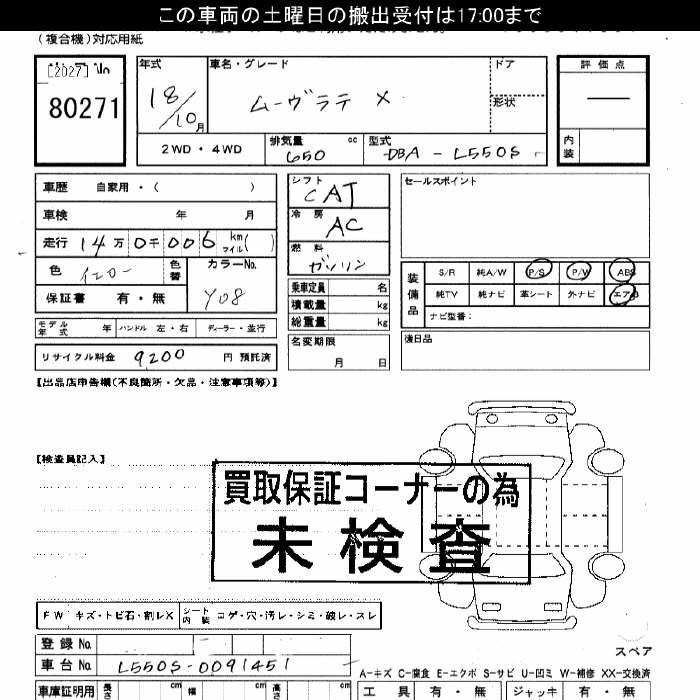 この車両の土曜日の搬出受付は17:00まで
(複合機)対応用紙
[2027] No
80271
年式
18/10月
車名・グレード
ムーヴラテ X
ドア
形状
評価点
内装
2WD・4WD
排気量 cc
650
型式
DBA - L550S
車歴 自家用・( )
車検 年 月
走行 14万 0千 006 km マイル( )
色 イエロー
色替
カラーNo.
Y08
保証書 有・無
モデル年式 年
ハンドル 左・右
ディーラー・並行
リサイクル料金 9200 円 預託済
シフト
CAT
冷房
AC
燃料
ガソリン
乗車定員 名
積載量 kg
総重量 kg
名変期限
月 日
セールスポイント
装備品
S/R 純A/W P/S P/W ABS
純TV 純ナビ 革シート 外ナビ エアB
ナビ型番:
後日品
【出品店申告欄(不良箇所・欠品・注意事項等)】
【検査員記入】
買取保証コーナーの為
未検査
FW キズ・トビ石・割レX
シート内装 コゲ・穴・汚レ・シミ・破レ・スレ
登録No.
車台No. L550S-0091451
スペア
A-キズ C-腐食 E-エクボ S-サビ U-凹ミ W-補修 XX-交換済
車庫証明用 長さ cm 幅 cm 高さ cm
工具 有・無 ジャッキ 有・無